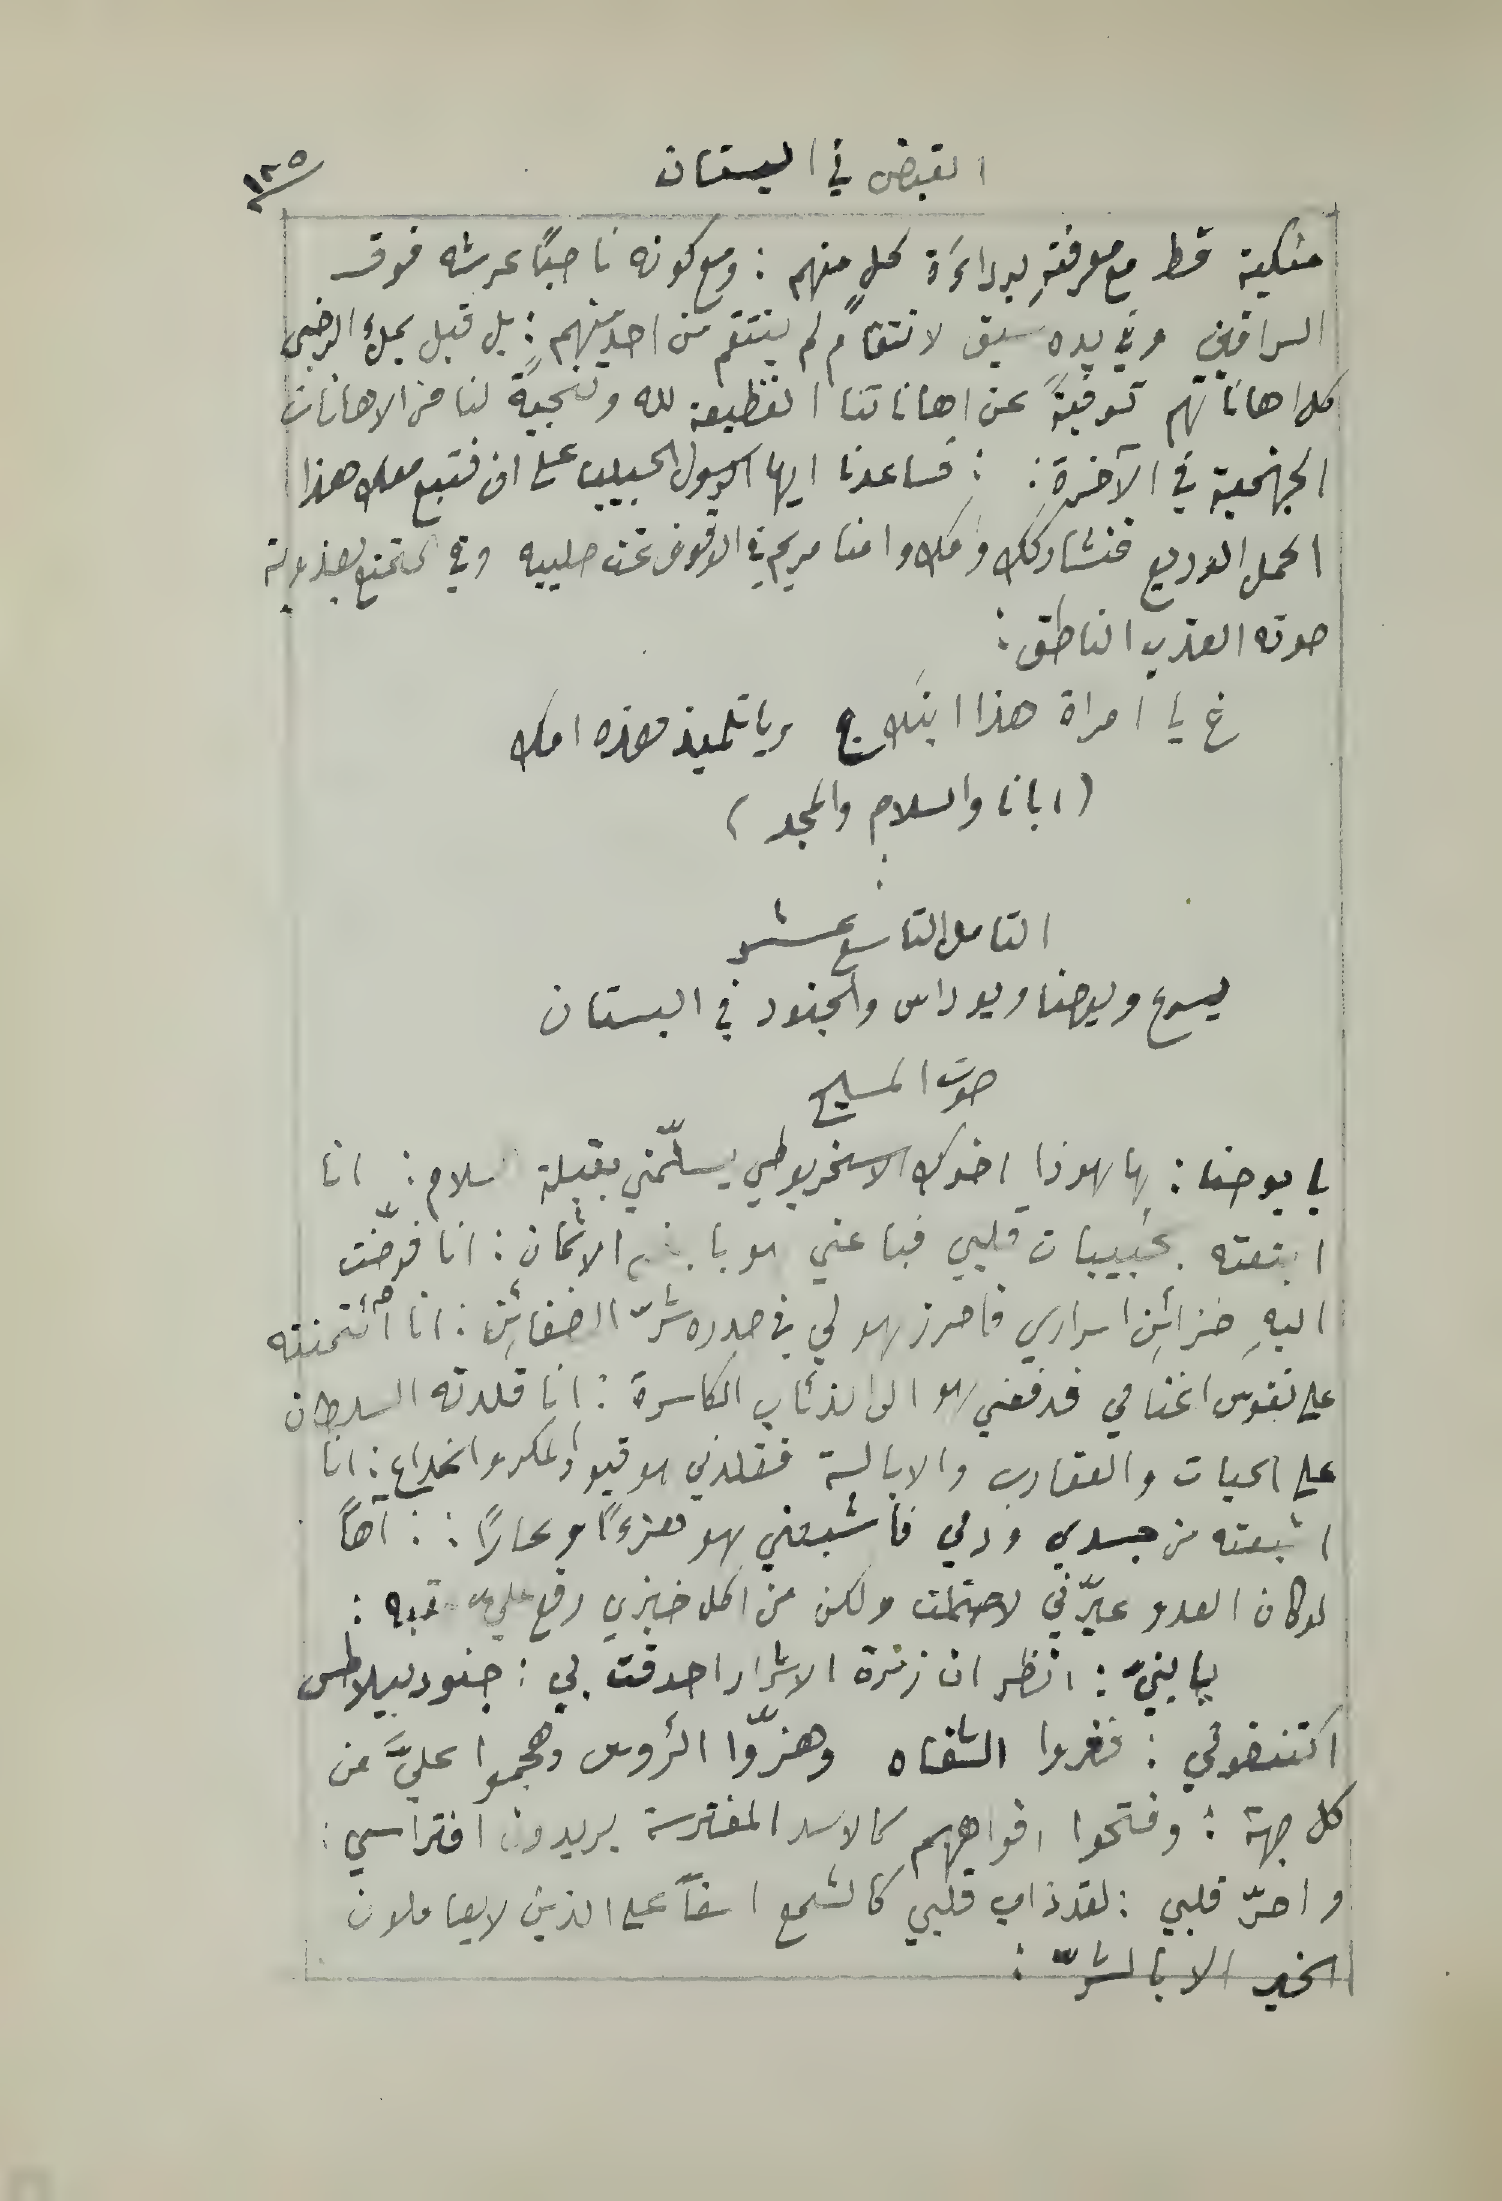 القبض في البستان
١٣٥
منكية قط مع معرفتهِ برداءَة كلٍ منهم : ومع كونه ناصبًا عرشه فوق
السرافين وفي يدهِ سيف لانتقام لم ينتقم من احد منهم : بل قبل بملءِ الرضى
كل اهاناتهم توفيةً عن اهاناتنا الفظيعة لله وتنجيةً لنا من الاهانات
الجهنمية في الآخرة : : فساعدنا ايها الرسول الحبيب على ان نتبع معك هذا
الحمل الوديع فنشاركك وامك وامنا مريم في الوقوف تحت صليبه وفي التمتع بعذوبة
صوته العذب الناطق :
غ يا امراة هذا ابنك ج ويا تلميذ هذه امك
( ابانا والسلام والمجد )
التامل التاسع عشر
يسوع ويوحنا ويوداس والجنود في البستان
صوت المسيح
يا يوحنا : ها هوذا اخوك الاسخريوطي يسلّمني بقبلة سلام : انا
ابتعته بحبيبات قلبي فباعني هو الاثمان : انا فوّضت
اليهِ خزائن اسراري فاحرز هو لي في صدره شرّ الضغائن : انا أئتمنته
على نفوس اغنامي فدفعني هو الى الذئاب الكاسرة : انا قلدته السلطان
على الحيات والعقارب والابالسة فقلدني هو قيود المكر والخداع : انا
اشبعته من جسدي ودمي فأشبعني هو هزءًا وعارًا : : آهًا
لو كان العدو عيّرني لاحتملت ولكن من اكل خبزي رفع عليّ عقبه :
يا بنيّ : انظر ان زمرة الاشرار احدقت بي : جنود بيلاطس
اكتنفوني : فغروا الشفاه وهزّوا الرؤوس وهجموا عليَّ من
كل جهة : وفتحوا افواههم كالاسد المفترسة يريدون افتراسي :
واحرّ قلبي : لقد ذاب قلبي كالشمع اسفًا على الذين لا يعاملون
الخير الا بالشرّ :